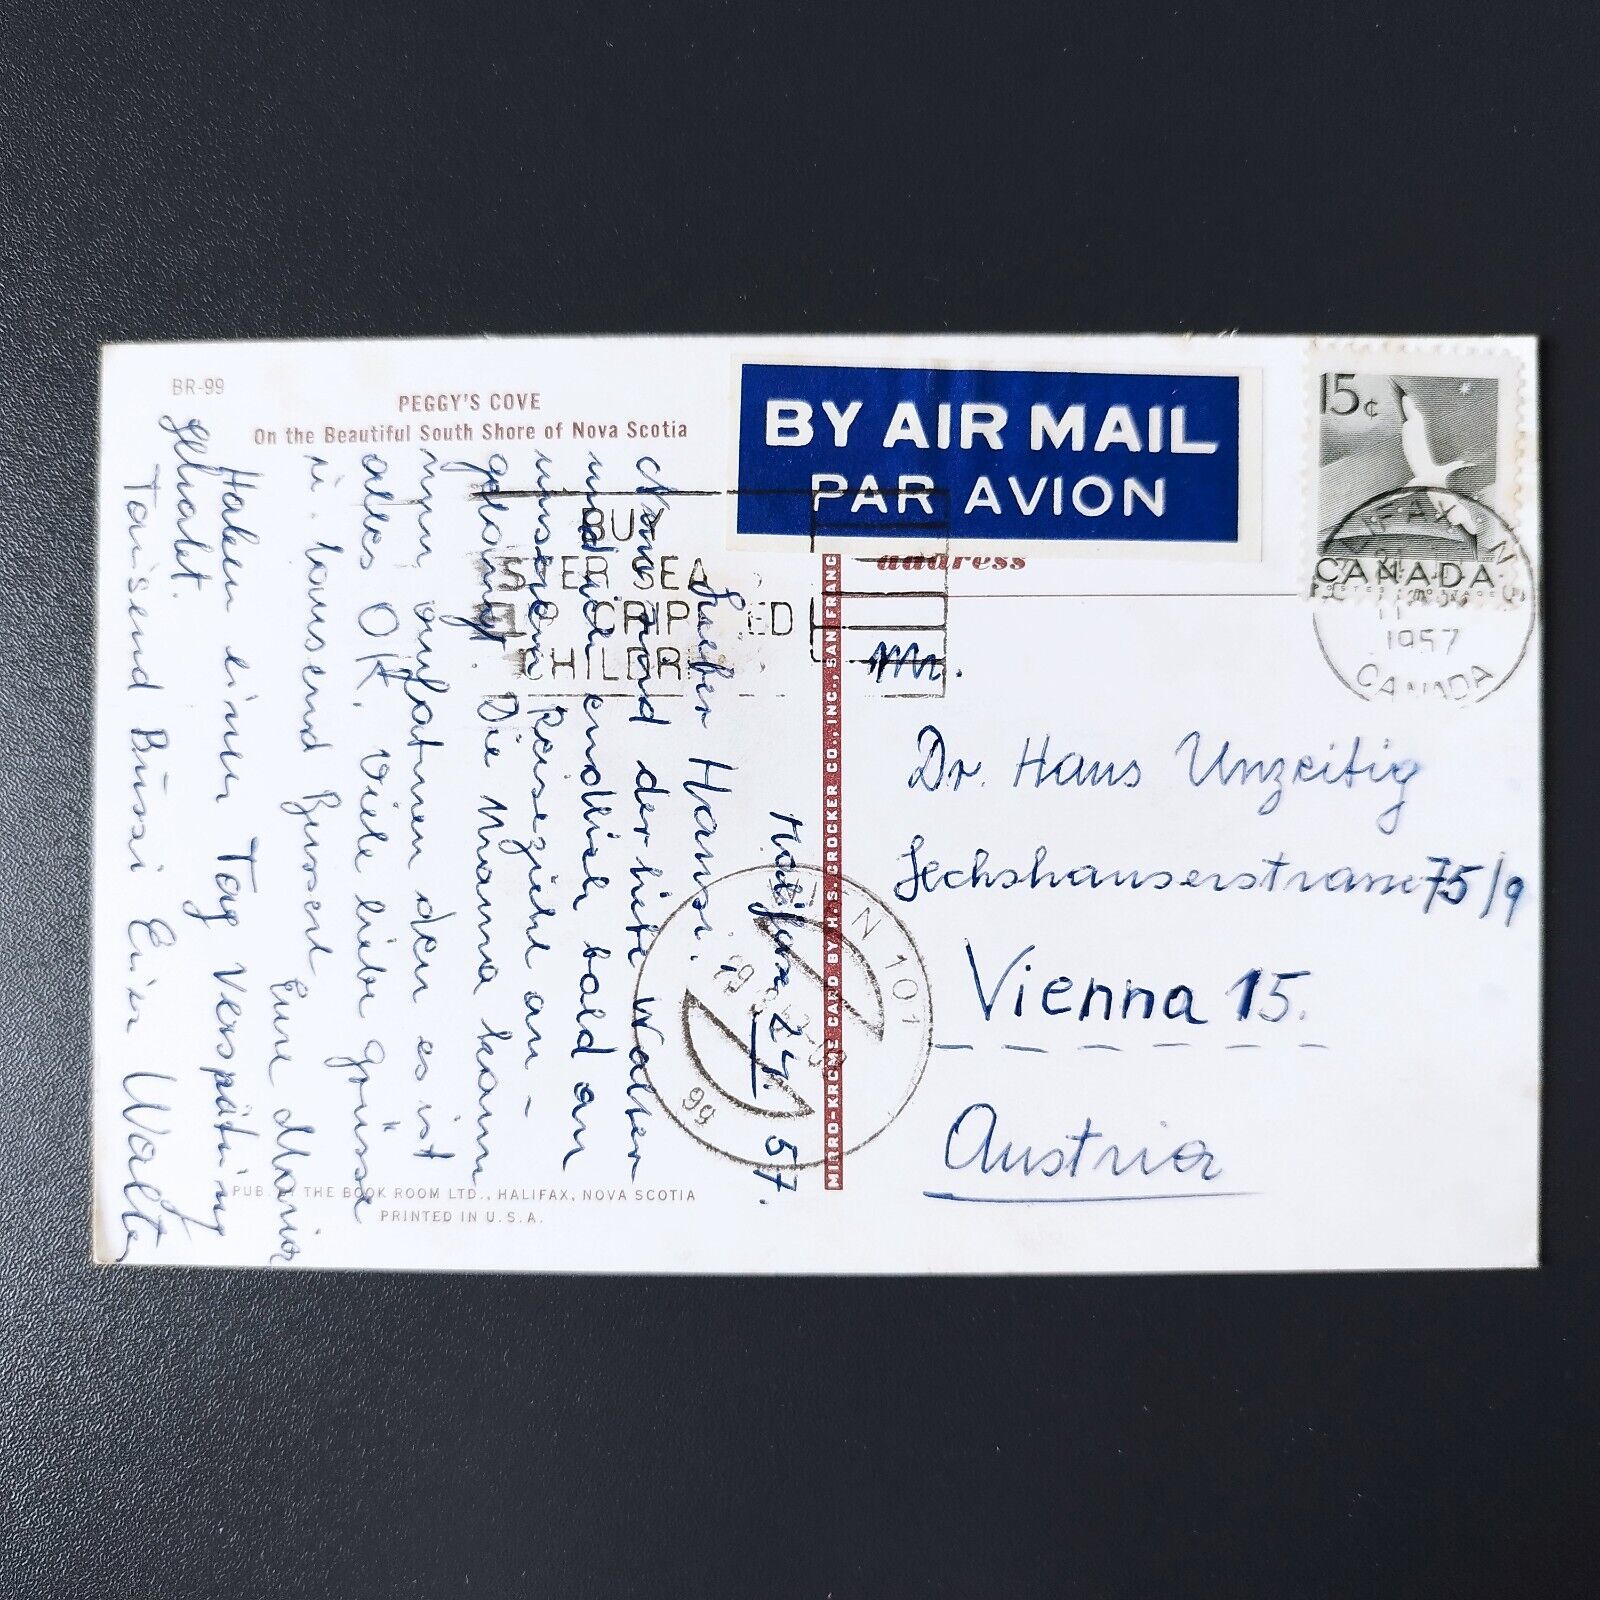 BR-99
PEGGY'S COVE
On the Beautiful South Shore of Nova Scotia
BY AIR MAIL
PAR AVION
15¢
CANADA
HALIFAX N
1957
CANADA
BUY
EASTER SEALS
CRIPPLED
CHILDREN
address
Mr.
Dr. Hans Unzeitig
Sechshauserstrasse 75/9
Vienna 15.
Austria
Halifax 24. 57.
Lieber Hansi.
Nun sind der liebe Walter
und ich endlich bald an
unserem Reiseziehl an-
gelangt. Die Mama kann
nun aufatmen den es ist
alles OK. Viele liebe grüsse
u. tausend Busserl Eure Maria
Haben einen Tag Verspätung
gehabt.
Tausend Bussi Euer Walter
WIEN 101
99
MIRRO-KROME CARD BY H. S. CROCKER CO., INC., SAN FRANC
PUB. BY THE BOOK ROOM LTD., HALIFAX, NOVA SCOTIA
PRINTED IN U.S.A.